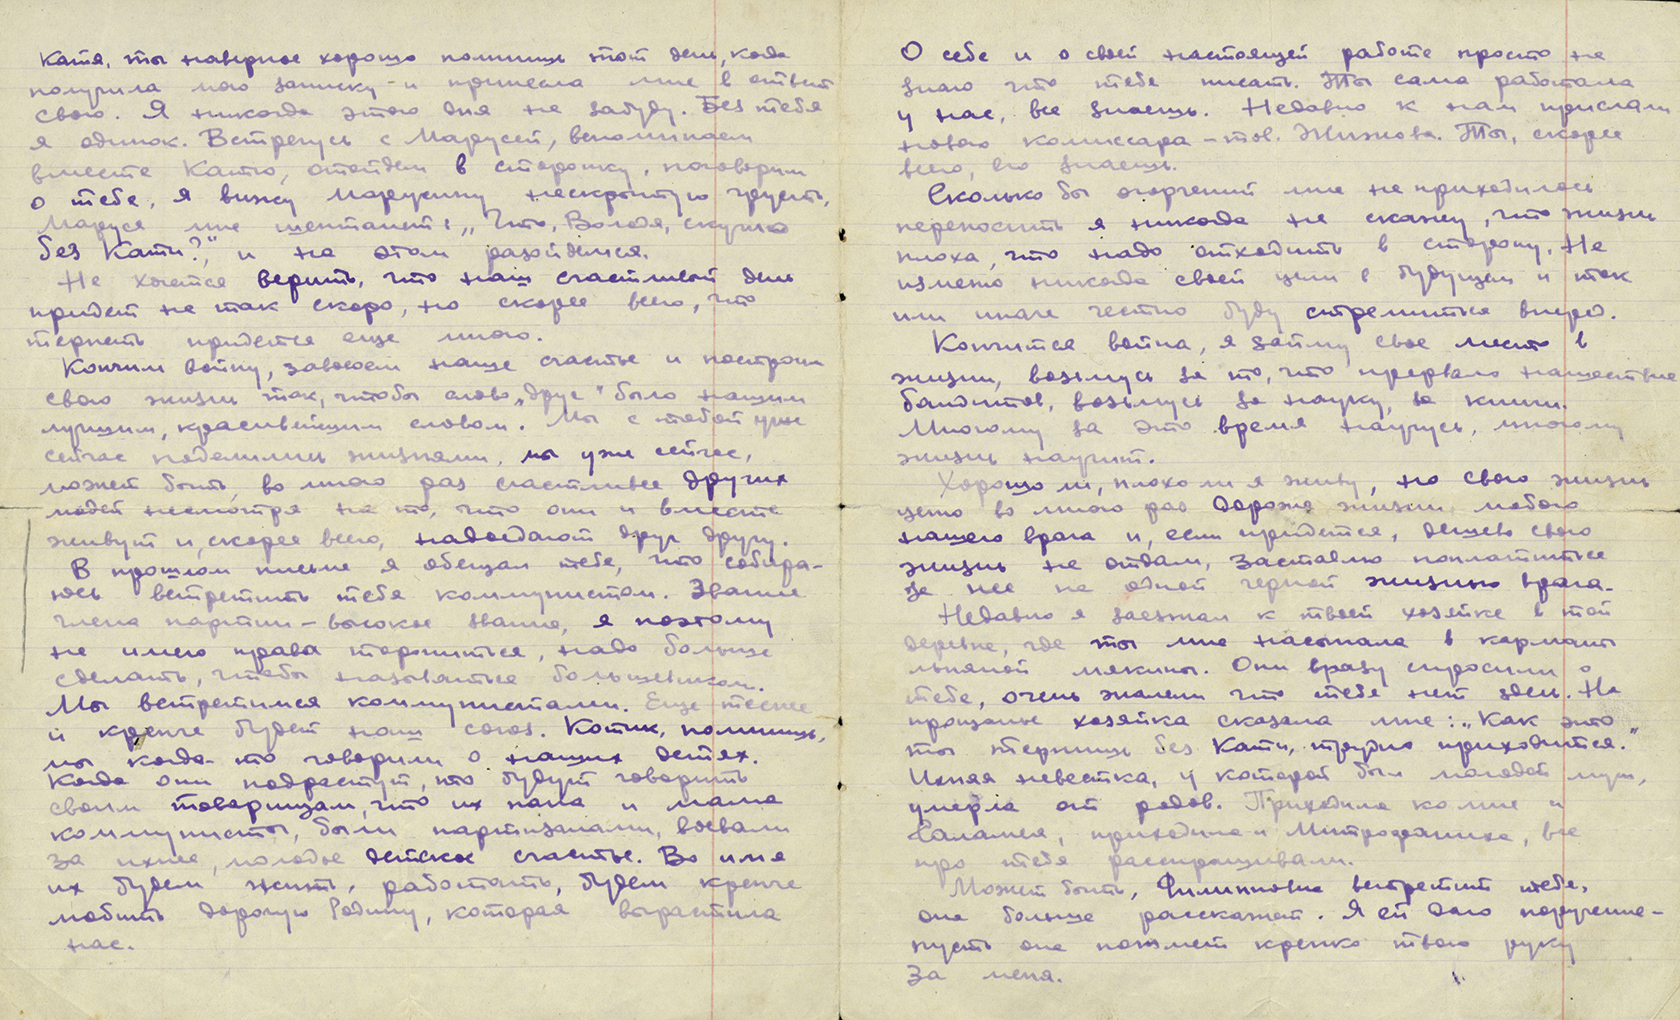 Катя, ты наверное хорошо помнишь тот день, когда
получила мою записку и принесла мне в ответ
свою. Я никогда этого дня не забуду. Без тебя
я одинок. Встречусь с Марусей, вспоминаем
вместе Катю, отойдем в сторонку, поговорим
о тебе, я вижу Марусину нескрытую грусть,
Маруся мне шептает: „Что, Володя, скучно
без Кати?", и на этом разойдемся.
Не хочется верить, что наш счастливый день
придет не так скоро, но скорее всего, что
терпеть придется еще много.
Кончим войну, завоюем наше счастье и построим
свою жизнь так, чтобы слово „друг" было нашим
лучшим, красивейшим словом. Мы с тобой уже
сейчас поделились жизнями, мы уже сейчас,
может быть, во много раз счастливее других
людей несмотря на то, что они и вместе
живут и, скорее всего, надоедают друг другу.
В прошлом письме я обещал тебе, что собира-
юсь встретить тебя коммунистом. Звание
члена партии – высокое звание, я поэтому
не имею права торопиться, надо больше
сделать, чтобы называться большевиком.
Мы встретимся коммунистами. Еще теснее
и крепче будет наш союз. Котик, помнишь,
мы когда-то говорили о наших детях.
Когда они подрастут, то будут говорить
своим товарищам, что их папа и мама
коммунисты, были партизанами, воевали
за ихнее, молодое детское счастье. Во имя
их будем жить, работать, будем крепче
любить дорогую Родину, которая вырастила
нас.
О себе и о своей настоящей работе просто не
знаю что тебе писать. Ты сама работала
у нас, все знаешь. Недавно к нам прислали
нового комиссара – тов. Жижнова. Ты, скорее
всего, его знаешь.
Сколько бы огорчений мне не приходилось
переносить я никогда не скажу, что жизнь
плоха, что надо отходить в сторону. Не
изменю никогда своей цели в будущем и так
или иначе честно буду стремиться вперед.
Кончится война, я займу свое место в
жизни, возьмусь за то, что прервало нашествие
бандитов, возьмусь за науку, за книги.
Многому за это время научусь, многому
жизнь научит.
Хорошо ли, плохо ли я живу, но свою жизнь
ценю во много раз дороже жизни любого
нашего врага и, если придется, дешево свою
жизнь не отдам, заставлю поплатиться
за нее не одной черной жизнью врага.
Недавно я заезжал к твоей хозяйке в той
деревне, где ты мне насыпала в карманы
льняной мякины. Они вразу спросили о
тебе, очень жалели что тебя нет здесь. На
прощанье хозяйка сказала мне: „Как это
ты терпишь без Кати, трудно приходится."
Ихняя невестка, у которой был молодой муж,
умерла от родов. Приходила ко мне и
Саламея, приходила и Митрофаниха, все
про тебя расспрашивали.
Может быть, Филипповна встретит тебя,
она больше расскажет. Я ей даю поручение –
пусть она пожмет крепко твою руку
за меня.